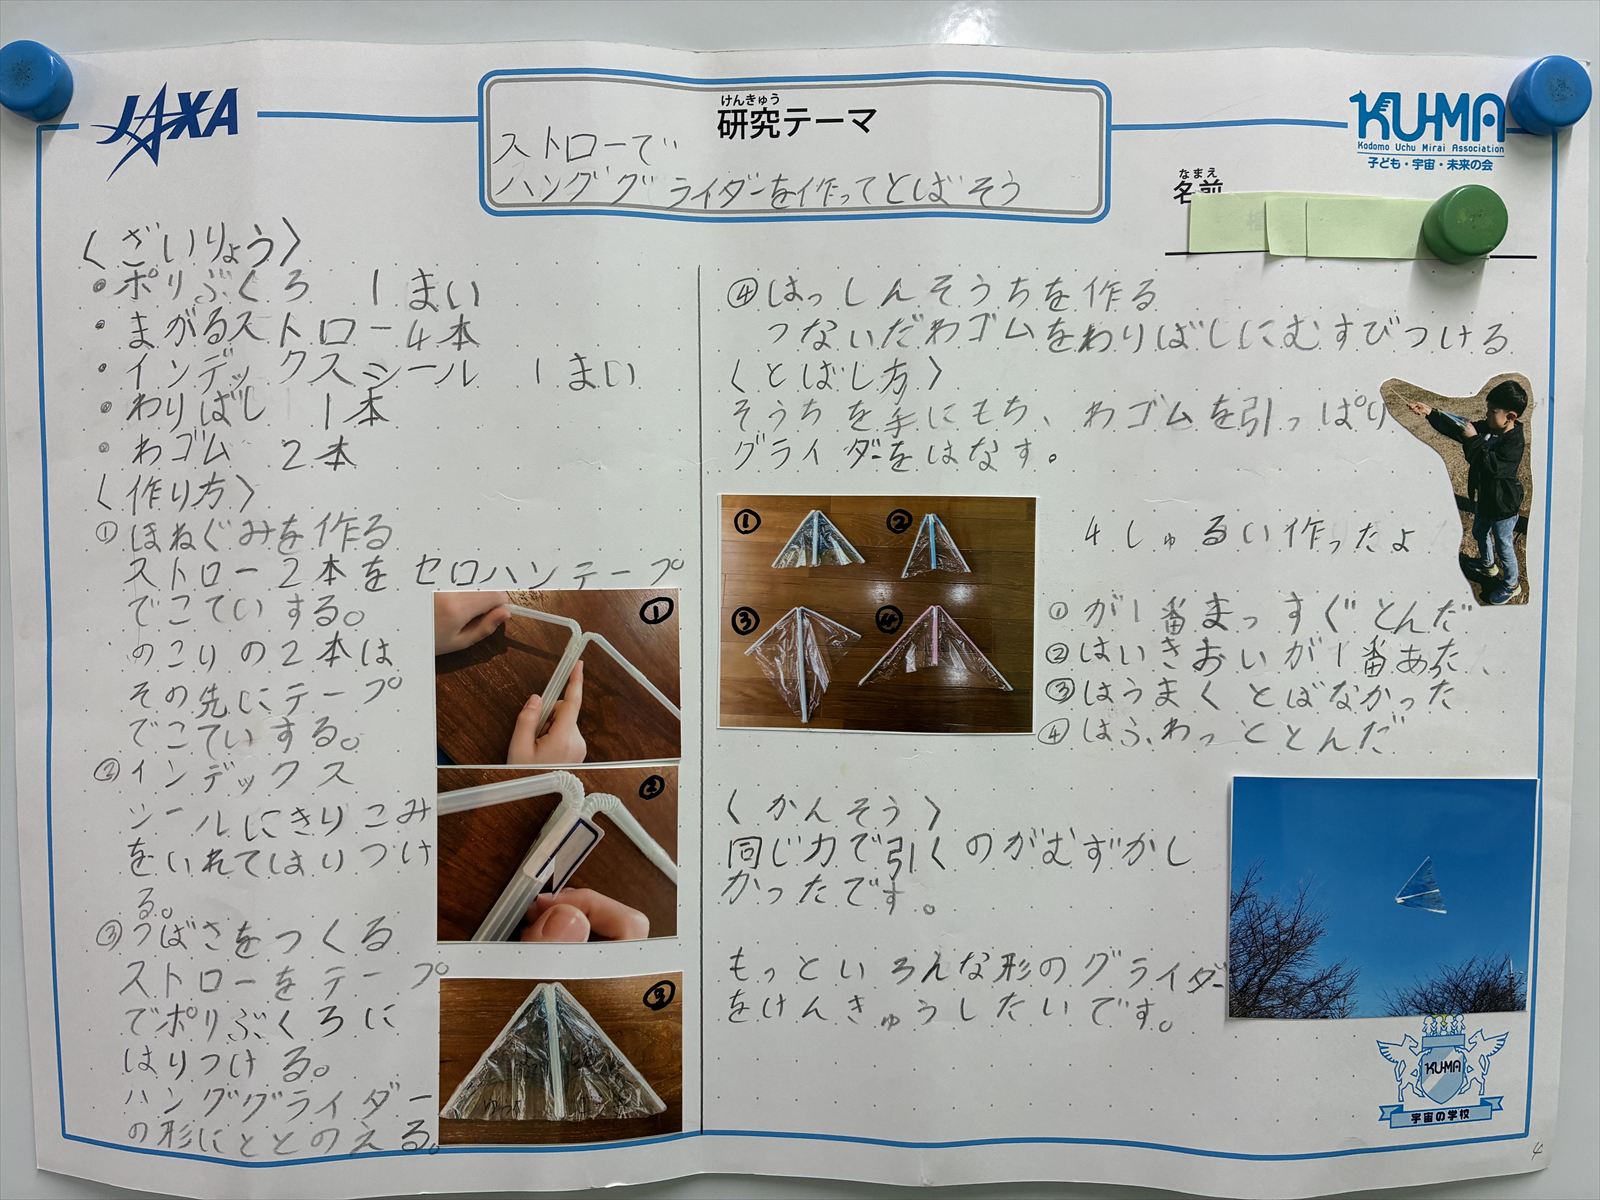 JAXA
けんきゅう
研究テーマ
ストローで
ハンググライダーを作ってとばそう
KU-MA
Kodomo Uchu Mirai Association
子ども・宇宙・未来の会
なまえ
名前
〈ざいりょう〉
・ポリぶくろ 1まい
・まがるストロー4本
・インデックスシール 1まい
・わりばし 1本
・わゴム 2本
〈作り方〉
①ほねぐみを作る
ストロー2本をセロハンテープ
でこていする。
のこりの2本は
その先にテープ
でこていする。
②インデックス
シールにきりこみ
をいれてはりつけ
る。
③つばさをつくる
ストローをテープ
でポリぶくろに
はりつける。
ハンググライダー
の形にととのえる。
①
②
③
④はっしんそうちを作る
つないだわゴムをわりばしにむすびつける
〈とばし方〉
そうちを手にもち、わゴムを引っぱり
グライダーをはなす。
① ②
③ ④
4しゅるい作ったよ
①が1番まっすぐとんだ
②はいきおいが1番あった
③はうまくとばなかった
④はふわっととんだ
〈かんそう〉
同じ力で引くのがむずかし
かったです。
もっといろんな形のグライダー
をけんきゅうしたいです。
KU-MA
宇宙の学校